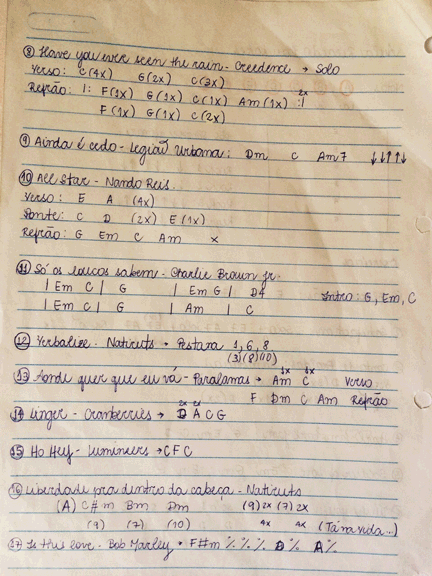 ⑧ Have you ever seen the rain - Creedence → Solo
Verso: C(4x) G(2x) C(3x)
Refrão: |: F(1x) G(1x) C(1x) Am(1x) :| 2x
F(1x) G(1x) C(2x)
⑨ Ainda é cedo - Legião Urbana: Dm C Am7 ↓↓↑↑↓
⑩ All Star - Nando Reis
Verso: E A (4x)
Ponte: C D (2x) E(1x)
Refrão: G Em C Am x
⑪ Só os loucos sabem - Charlie Brown Jr.
| Em C | G | Em G | D4 Intro: G, Em, C
| Em C | G | Am | C
⑫ Verbalize - Natiruts • Pestana 1, 6, 8
(3)(8)(10)
1x 1x
⑬ Aonde quer que eu vá - Paralamas → Am C Verso
F Dm C Am Refrão
2x 2x
⑭ Linger - Cranberries → D A C G
⑮ Ho Hey - Lumineers → C F C
⑯ Liberdade pra dentro da cabeça - Natiruts
(A) C#m Bm Dm (9) 2x (7) 2x
(9) (7) (10) 4x 4x (Tá na vida..)
⑰ Is this love - Bob Marley • F#m % % % D % A %